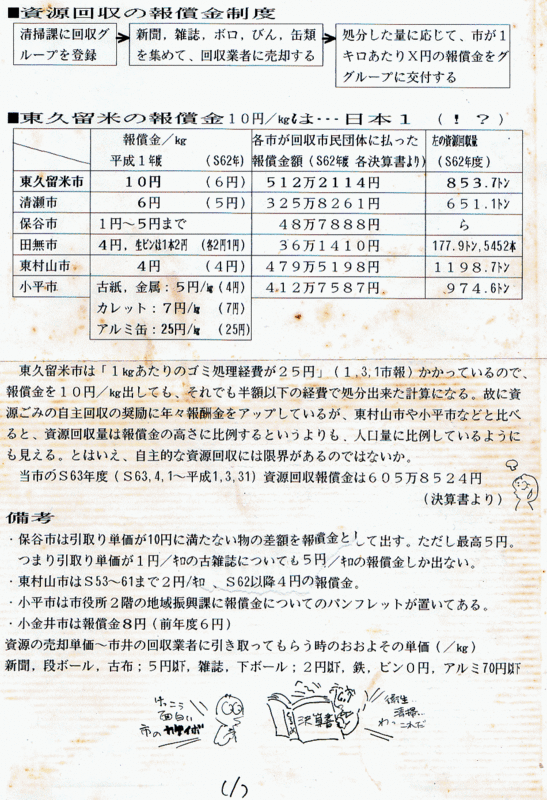 ■資源回収の報償金制度
清掃課に回収グ
ループを登録
新聞，雑誌，ボロ，びん，缶類
を集めて、回収業者に売却する
処分した量に応じて、市が１
キロあたりＸ円の報償金をグ
グループに交付する
■東久留米の報償金10円／㎏は…日本１　（！？）
報償金／㎏
平成１年度　（S62年）
各市が回収市民団体に払った
報償金額（S62年度　各決算書より）
左の資源回収量
（S62年度）
東久留米市　10円　（6円）　512万2114円　853.7㌧
清瀬市　6円　（5円）　325万8261円　651.1㌧
保谷市　1円〜5円まで　48万7888円　ら
田無市　4円，生ビンは1本2円　（各2円1円）　36万1410円　177.9㌧,5452本
東村山市　4円　（4円）　479万5198円　1198.7㌧
小平市　古紙，金属：5円／㎏（4円）　412万7587円　974.6㌧
カレット：7円／㎏　（7円）
アルミ缶：25円／㎏　（25円）
東久留米市は「１㎏あたりのゴミ処理経費が２５円」（１,３,１市報）かかっているので、
報償金を１０円／㎏出しても、それでも半額以下の経費で処分出来た計算になる。故に資
源ごみの自主回収の奨励に年々報酬金をアップしているが、東村山市や小平市などと比べ
ると、資源回収量は報償金の高さに比例するというよりも、人口量に比例しているように
も見える。とはいえ、自主的な資源回収には限界があるのではないか。
当市のＳ63年度（Ｓ63,4,1〜平成1,3,31）資源回収報償金は６０５万８５２４円
（決算書より）
備考
・保谷市は引取り単価が10円に満たない物の差額を報償金として出す。ただし最高５円。
つまり引取り単価が１円／㌔の古雑誌についても５円／㌔の報償金しか出ない。
・東村山市はＳ53〜61まで２円／㌔　、Ｓ62以降４円の報償金。
・小平市は市役所２階の地域振興課に報償金についてのパンフレットが置いてある。
・小金井市は報償金８円（前年度６円）
資源の売却単価〜市井の回収業者に引き取ってもらう時のおおよその単価（／㎏）
新聞，段ボール，古布；５円以下，雑誌，下ボール；２円以下，鉄，ビン０円，アルミ70円以下
けっこう
面白い
市の
決算書
衛生…
清掃…
これだ